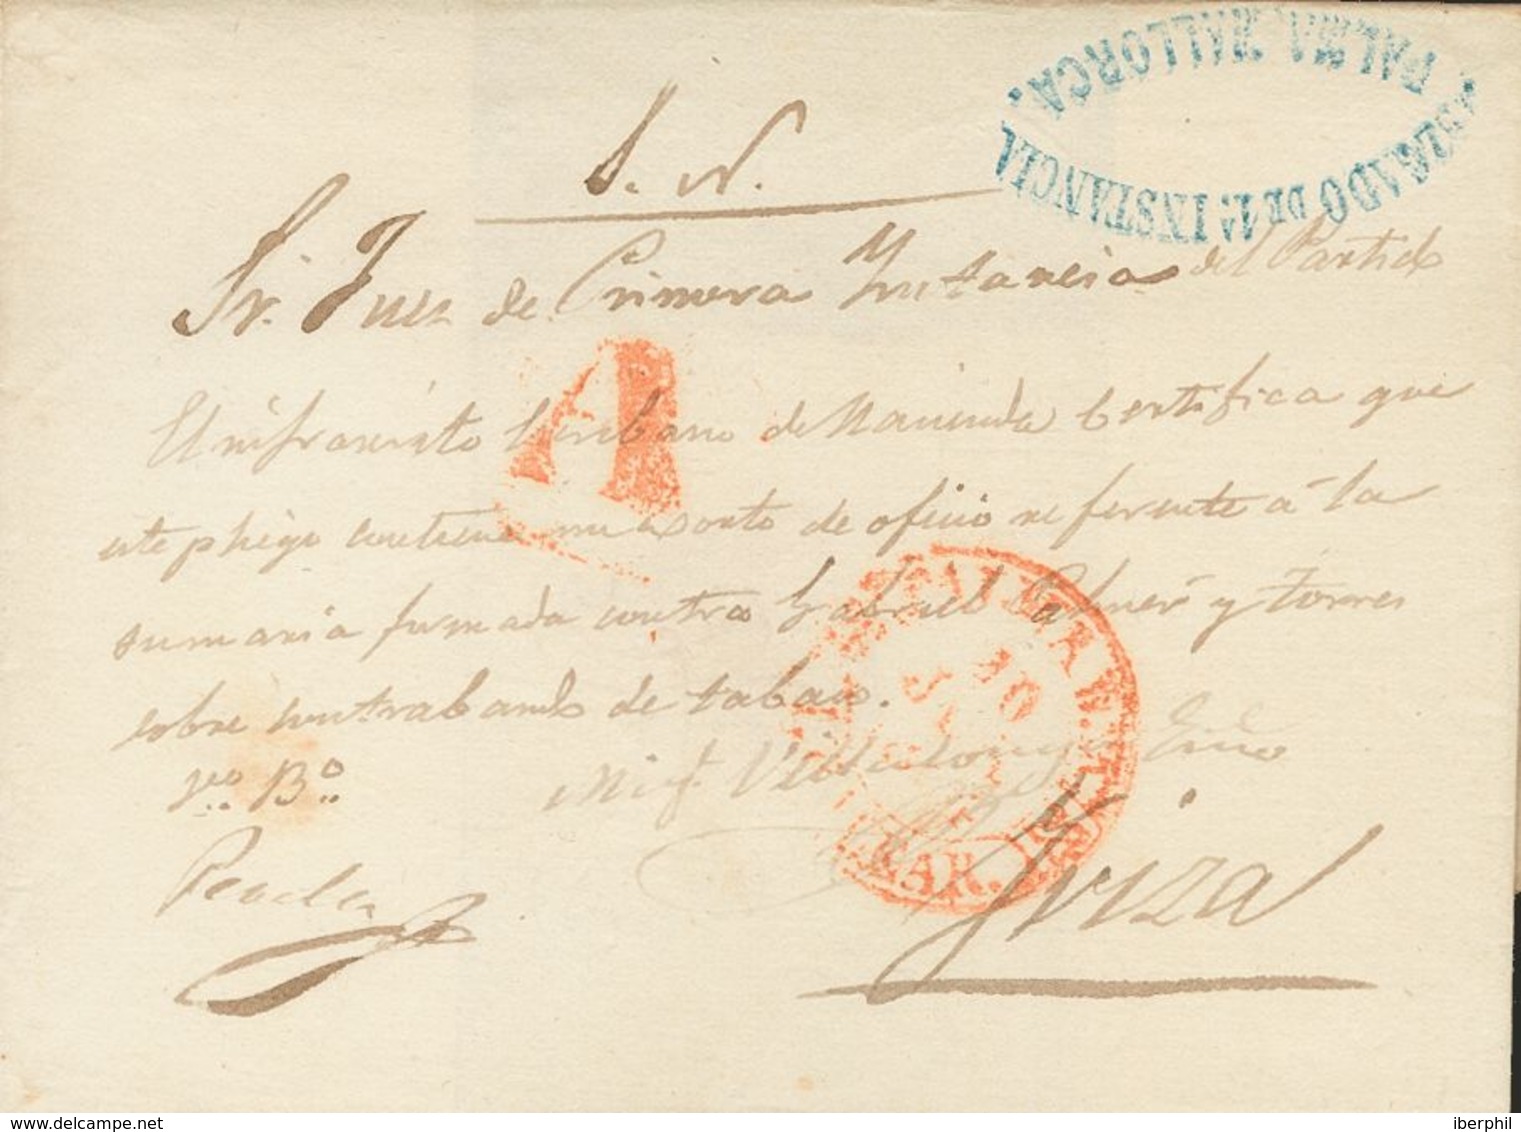 JUZGADO DE 1.ª INSTANCIA
PALMA MALLORCA.
S. N.
Sr. Juez de Primera Ynstancia del Partido
El infrascrito Escribano de Hacienda Certifica que
este pliego contiene un exorto de oficio referente á la
sumaria formada contra Gabriel Palmer y Torres
sobre contrabando de tabaco.
Vo. Bo.
Mig.l Villalonga Eno
A
PALMA DE MALLORCA
10
BALEAR.
Yviza
delcampe.net
iberphil